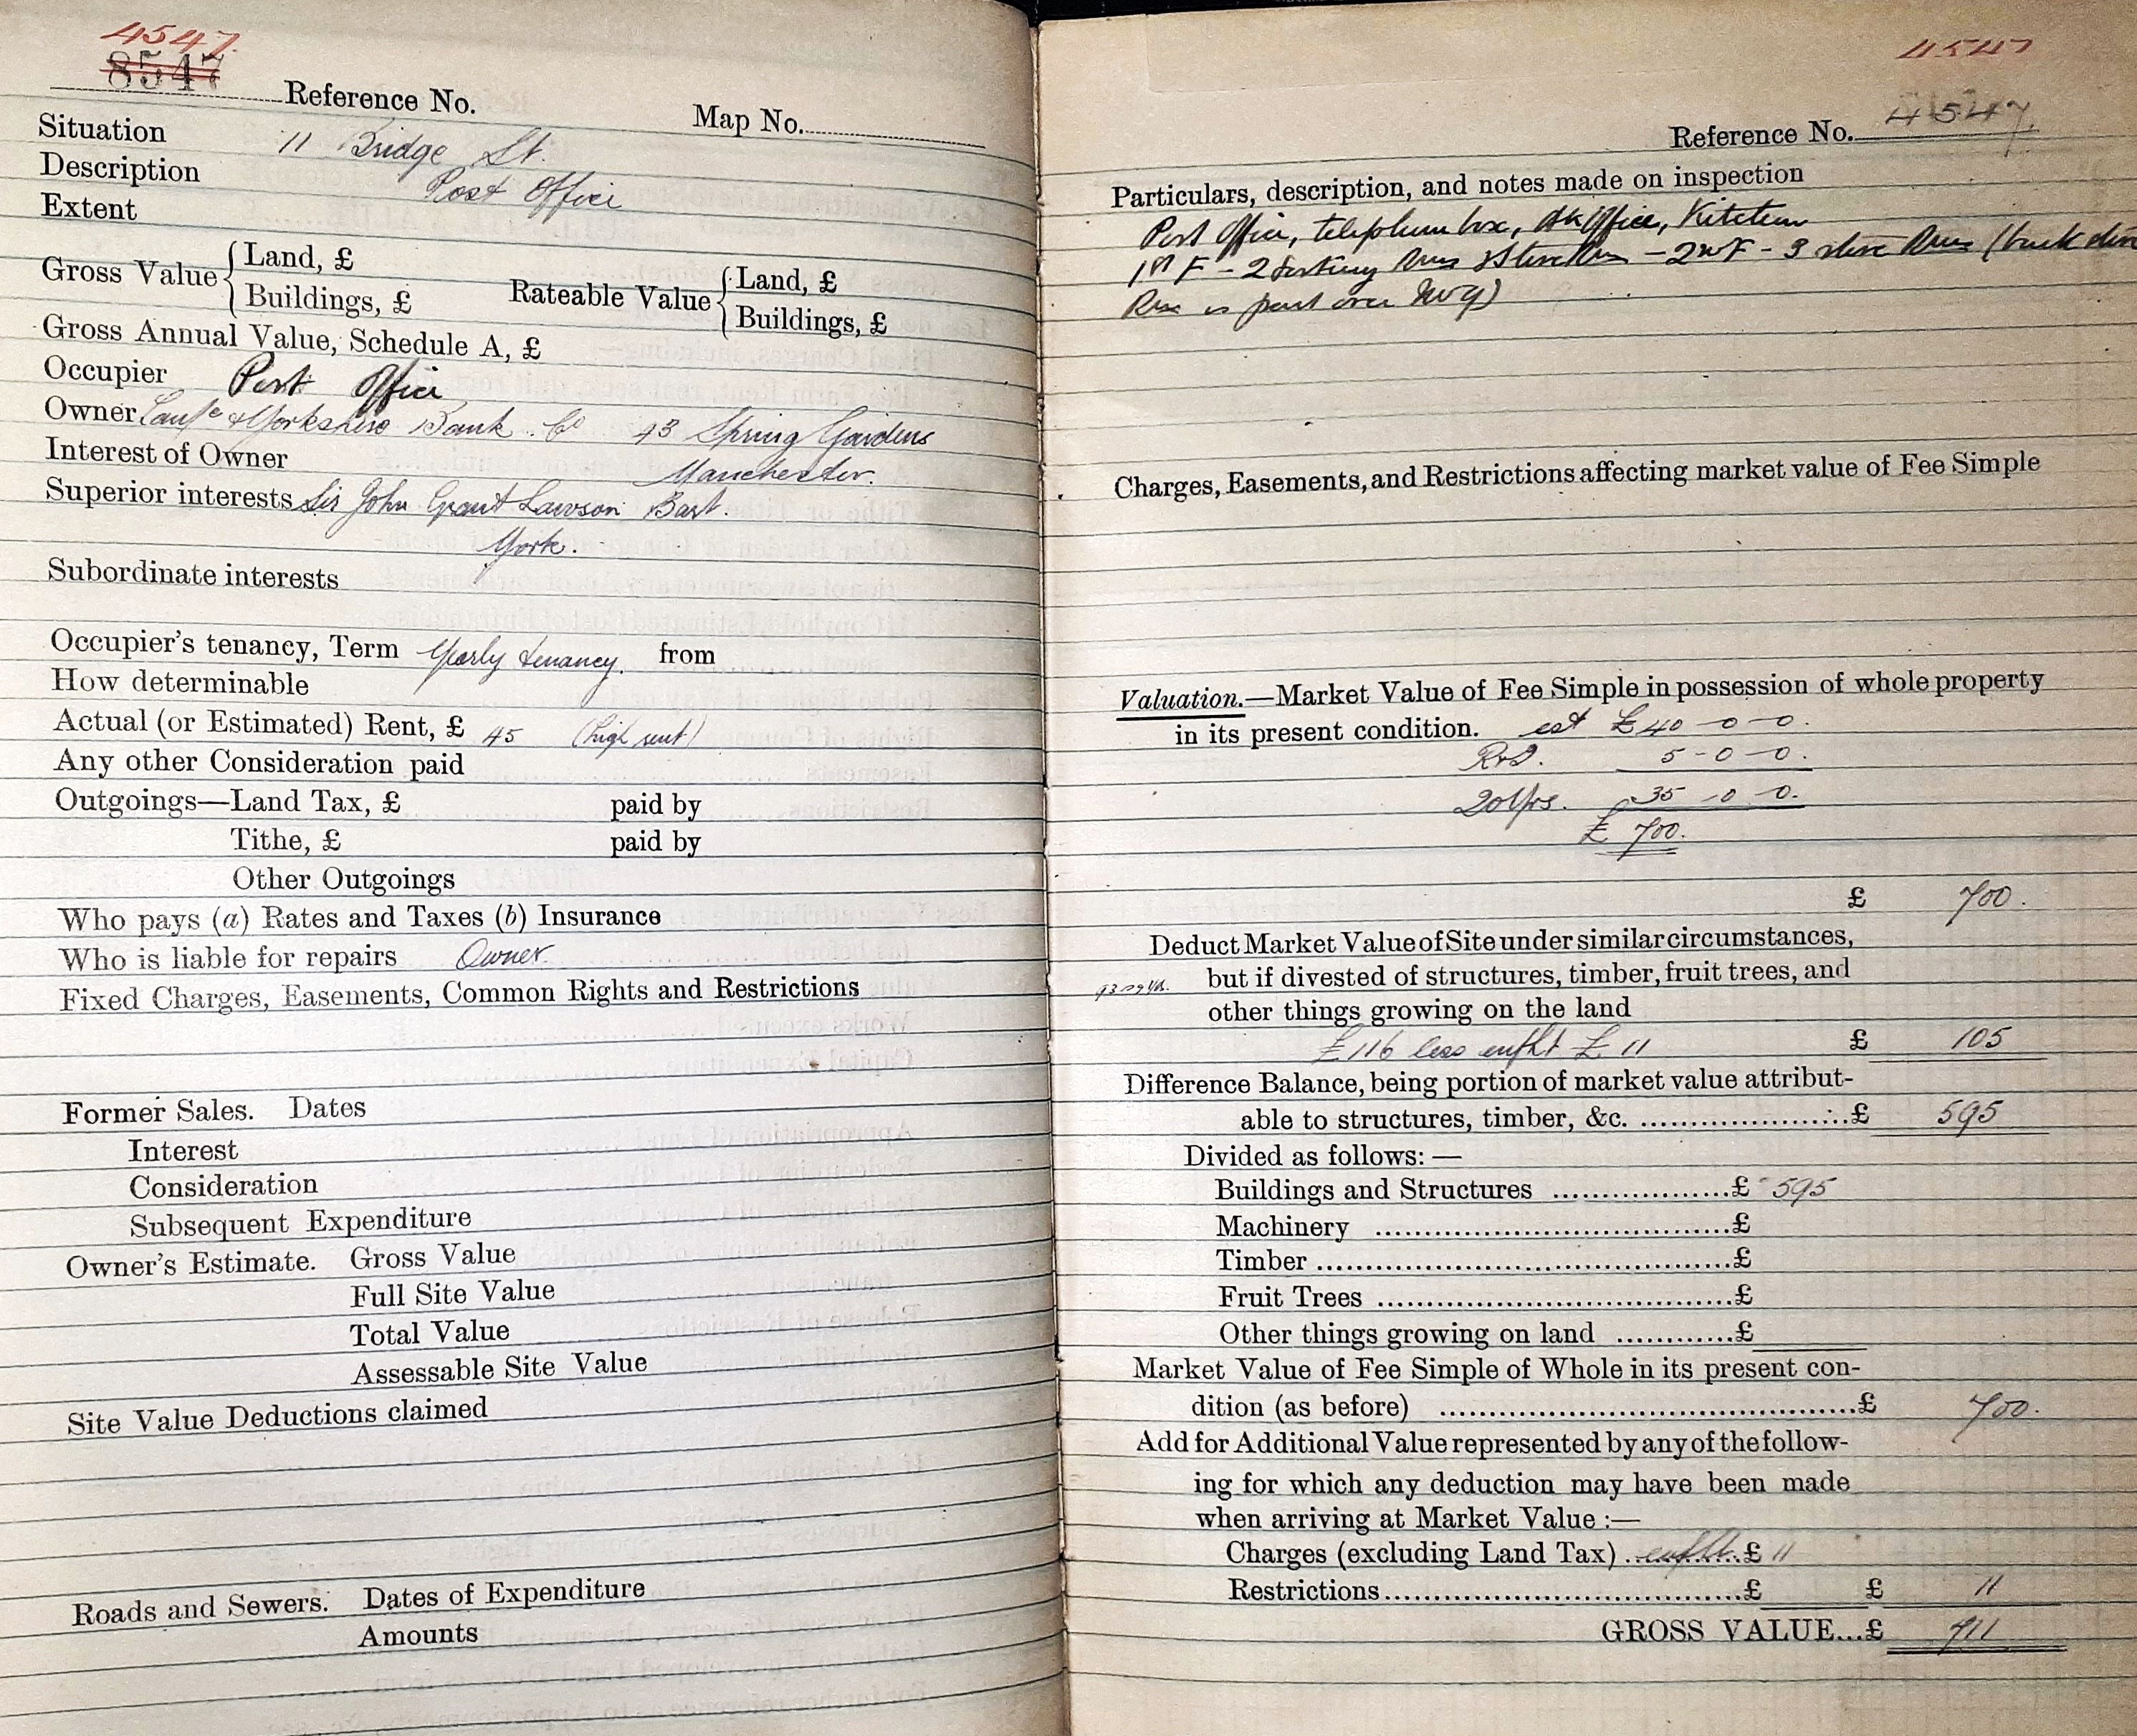 4547.
8547
Reference No. Map No.
Situation 11 Bridge St.
Description Post Office
Extent
Gross Value { Land, £
Buildings, £
Rateable Value { Land, £
Buildings, £
Gross Annual Value, Schedule A, £
Occupier Post Office
Owner Lancse & Yorkshire Bank Co 43 Spring Gardens
Manchester.
Interest of Owner
Superior interests Sir John Grant Lawson Bart.
York.
Subordinate interests
Occupier's tenancy, Term Yearly tenancy. from
How determinable
Actual (or Estimated) Rent, £ 45 (high rent)
Any other Consideration paid
Outgoings—Land Tax, £ paid by
Tithe, £ paid by
Other Outgoings
Who pays (a) Rates and Taxes (b) Insurance
Who is liable for repairs Owner.
Fixed Charges, Easements, Common Rights and Restrictions
Former Sales. Dates
Interest
Consideration
Subsequent Expenditure
Owner's Estimate. Gross Value
Full Site Value
Total Value
Assessable Site Value
Site Value Deductions claimed
Roads and Sewers. Dates of Expenditure
Amounts
4547
Reference No. 4547.
Particulars, description, and notes made on inspection
Post Office, telephone box, Office, Kitchen
1st F - 2 sorting Rms - 2nd F - 3 store Rms (back
Rm is part over
Charges, Easements, and Restrictions affecting market value of Fee Simple
Valuation.—Market Value of Fee Simple in possession of whole property
in its present condition. est £40-0-0.
5-0-0.
20 Yrs. 35-0-0.
£ 700.
£ 700.
Deduct Market Value of Site under similar circumstances,
but if divested of structures, timber, fruit trees, and
other things growing on the land
£116 less £ 11 £ 105
Difference Balance, being portion of market value attribut-
able to structures, timber, &c. £ 595
Divided as follows:—
Buildings and Structures £ 595
Machinery £
Timber £
Fruit Trees £
Other things growing on land £
Market Value of Fee Simple of Whole in its present con-
dition (as before) £ 700.
Add for Additional Value represented by any of the follow-
ing for which any deduction may have been made
when arriving at Market Value :—
Charges (excluding Land Tax) £ 11
Restrictions £ £ 11
GROSS VALUE...£ 711